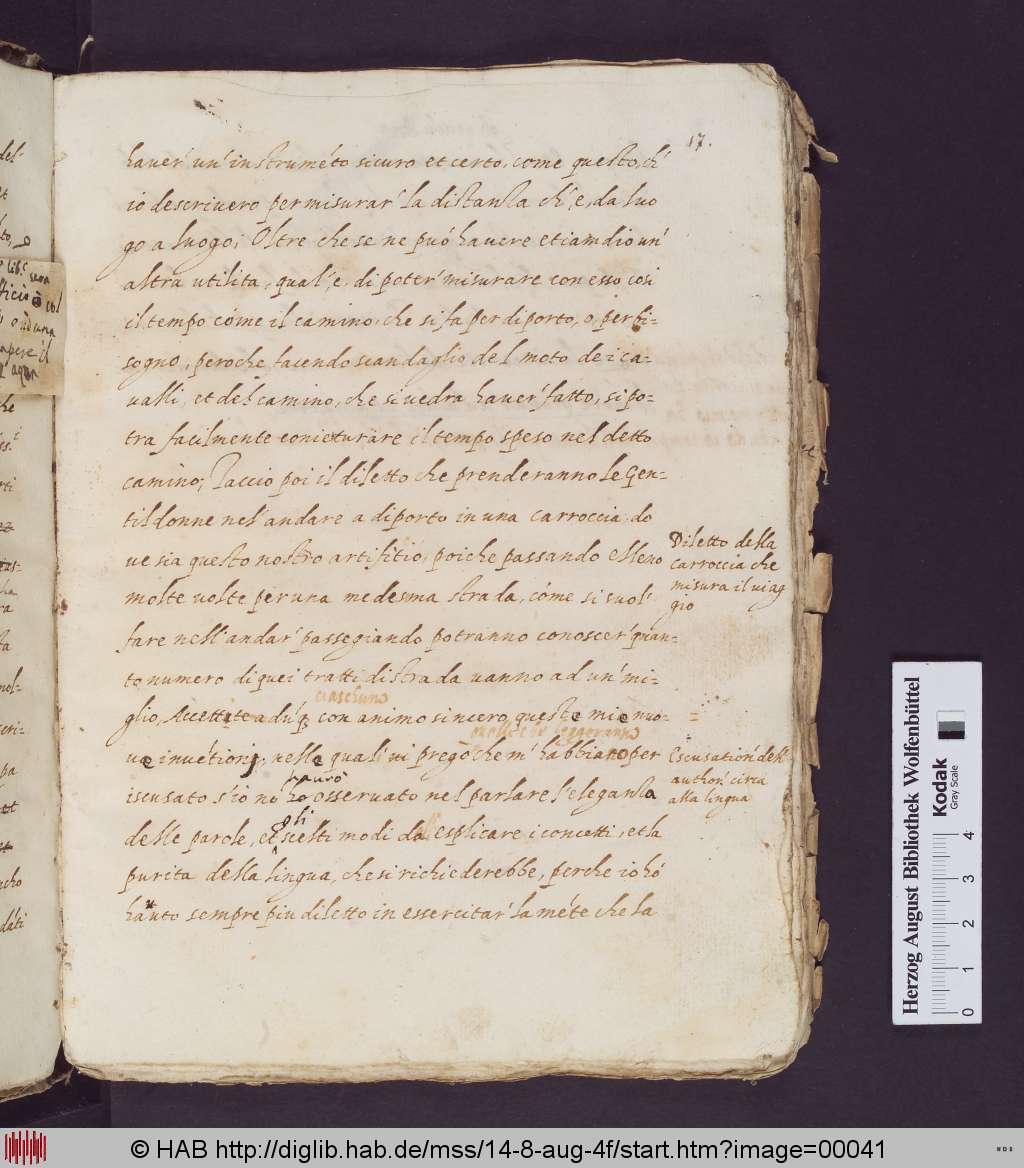 17.
haver' un' instrume͂to sicuro et certo, come questo, ch'
io descrivero per misurar' la distantia ch', e, da luo
go a luogo; Oltre che se ne puó havere etiamdio un'
altra utilita, qual', e, di poter' misurare con esso cosi
il tempo cóme il camino, che si fa per diporto, o, per bi-
sogno, peroche facendo scandaglio del moto de i ca-
valli, et del camino, che si vedra haver' fatto, si po-
tra facilmente conieturare il tempo speso nel detto
camino; Taccio poi il diletto che prenderanno le Gen-
tildonne nel' andare a diporto in una carroccia, do
ve sia questo nostro artifitio, poiche passando elleno
molte volte per una medesma strada, cóme si suol'
fare nell' andar' passegiando potranno conoscer' quan-
to numero di quei tratti di strada vanno ad un' mi-
ciaschuno
glio, Accettate con animo sincero queste mie nuo-
leggeranno
ve inve͂tioni, nelle quali vi prego che m' habbiano per
haurò
iscusato s'io no͂ ho osservato nel parlare l'elegantia
gli
delle parole, et scelti modi da esplicare i concetti, et la
purita della lingua, che si richiederebbe, perche io hó
hauto sempre piu diletto in essercitar' la me͂te che la
Diletto della
carroccia che
misura il viag
gio
Escusation' dell'
author' circa
alla lingua
del-
libr.
sapere il
che
rti
cho
dáti
Herzog August Bibliothek Wolfenbüttel
Kodak
Gray Scale
0 1 2 3 4
© HAB http://diglib.hab.de/mss/14-8-aug-4f/start.htm?image=00041